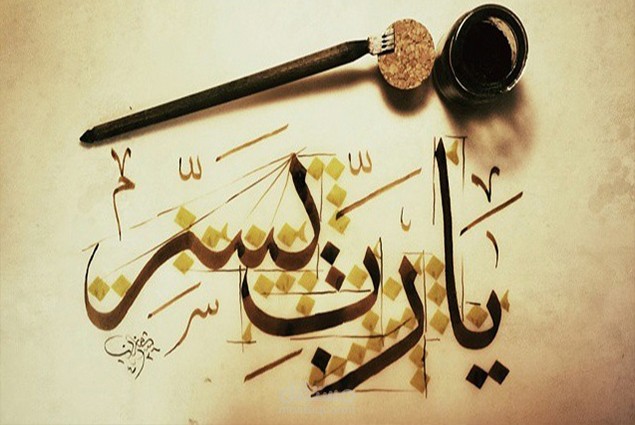 يَا رَبِّ يَسِّرْ